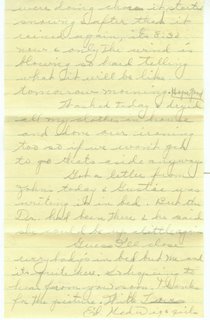 were doing chores it started
snowing & after that it
rained again, its 8:30
now & only the wind is
blowing so hard telling
what it will be like
tomorrow morning.
Washed today & dryed
all my clothes in house
and done our ironing
too so if we won't get
to go thats aside anyway.
Got a letter from
Johns today & Gustie was
writing it in bed. But the
Dr. had been there & he said
she could be up
Guess I'll close
everybody's in bed but me and
it's quiet here, so hoping to
hear from you soon. Thanks
for the picture,
Ed Hedwig & girls